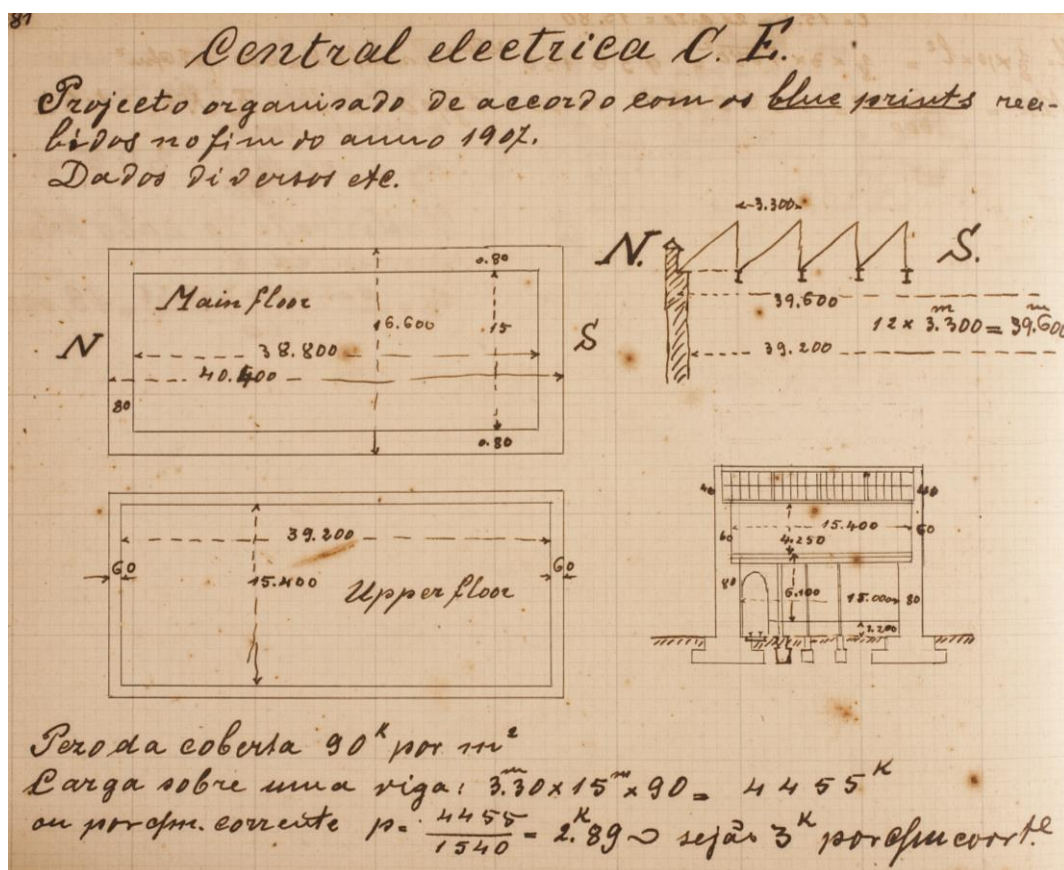 81
Central electrica C. E.
Projecto organisado de accordo com os blue prints rece-
bidos no fim do anno 1907.
Dados diversos etc.
N
Main floor
0.80
16.600
15
38.800
40.400
80
0.80
S
N.
3.300
S.
39.600
12 x 3.300 m = 39.600 m
39.200
39.200
60
60
15.400
Upper floor
40
40
15.400
60
60
4.250
80
6.100
15.000
80
1.200
Pezo da coberta 90K por m2
Carga sobre uma viga: 3.30m x 15m x 90 = 4455K
ou por cm. corrente p = 4455/1540 = 2.K89 ~ sejão 3K por cm corrte